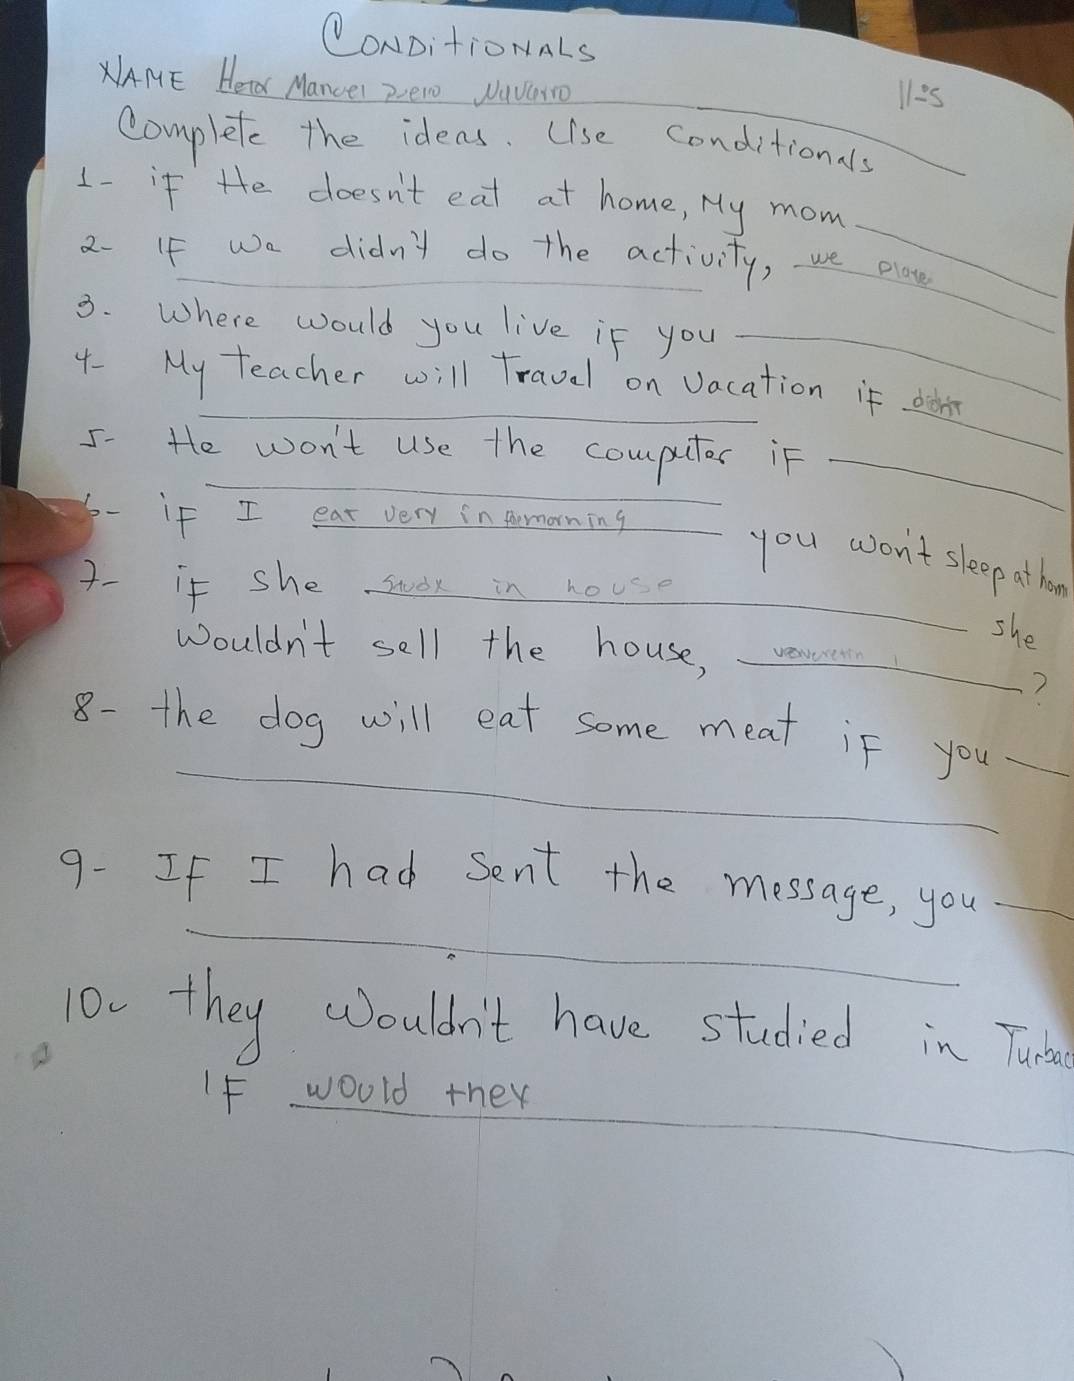 CONDITIONALS
NAME Manuel
11-5
Complete the ideas. Use conditionals
1- if He doesn't eat at home, My mom
2- IF We didn't do the activity, we
3. Where would you live if you
4- My Teacher will Travel on Vacation if didn't
5- He won't use the computer if
6- if I eat very in morning you won't sleep at hom
7- if she in house she
Wouldn't sell the house, ?
8- the dog will eat some meat iF you
9- IF I had sent the message, you
10- they Wouldn't have studied in Turbac
IF would they